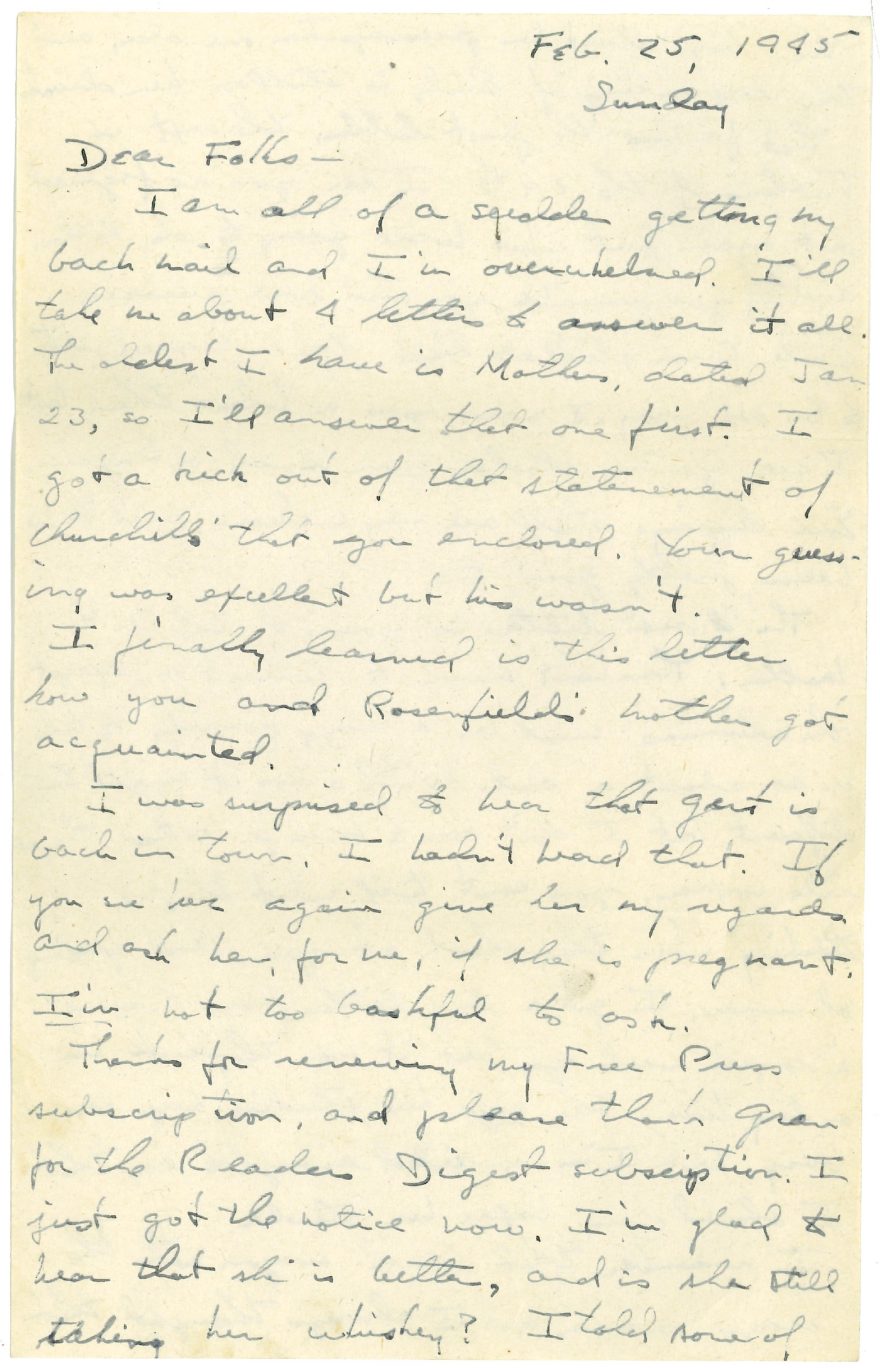 Feb. 25, 1945
Sunday
Dear Folks —
I am all of a sudden getting my
back mail and I'm overwhelmed. I'll
take me about 4 letters to answer it all.
The oldest I have is Mothers, dated Jan
23, so I'll answer that one first. I
got a kick out of that statement of
Churchills' that you enclosed. Your guess-
ing was excellent but his wasn't.
I finally learned is this letter
how you and Rosenfields' mother got
acquainted.
I was surprised to hear that Gert is
back in town. I hadn't heard that. If
you see her again give her my regards
and ask her, for me, if she is pregnant.
I'm not too bashful to ask.
Thanks for renewing my Free Press
subscription, and please thank Gran
for the Readers Digest subscription. I
just got the notice now. I'm glad to
hear that she is better, and is she still
taking her whiskey? I told some of